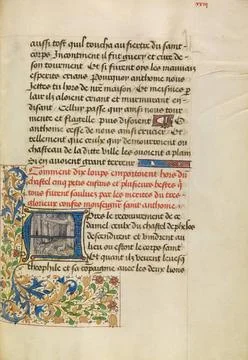 aussi tost quil toucha au fiertre du saint
corps Incontinent il fut guery et cure de
son tourment Et si furent ops les mauuais
esperis crians Pourquoy anthoine nous
Jettes tu hors de nre maison Et meismes p
lair ilz aloient criant et murmurant en
disant Cellui passe quy ainsi nous tour
mente et flagelle Puis disoient O
anthoine cesse de nous ainsi cruciier Et
tellement que ceulx quy demouroient ou
chasteau de la ditte ville les ouoient a plain
Si en auoient grant terreur
Comment dix loups emporterent hors du
chastel cinq petis enfans et plusieurs bestes q
tous furent saulues par les merites du tres
glorieux confes monseignr saint anthoine
Apres le recouurement de ce
damel ceulx du chastel de phelos
descendirent et vindrent au
lieu ou estoit le corps saint
Et quant ilz veirent leuesq
theophile et sa compaignie auec les deux lions